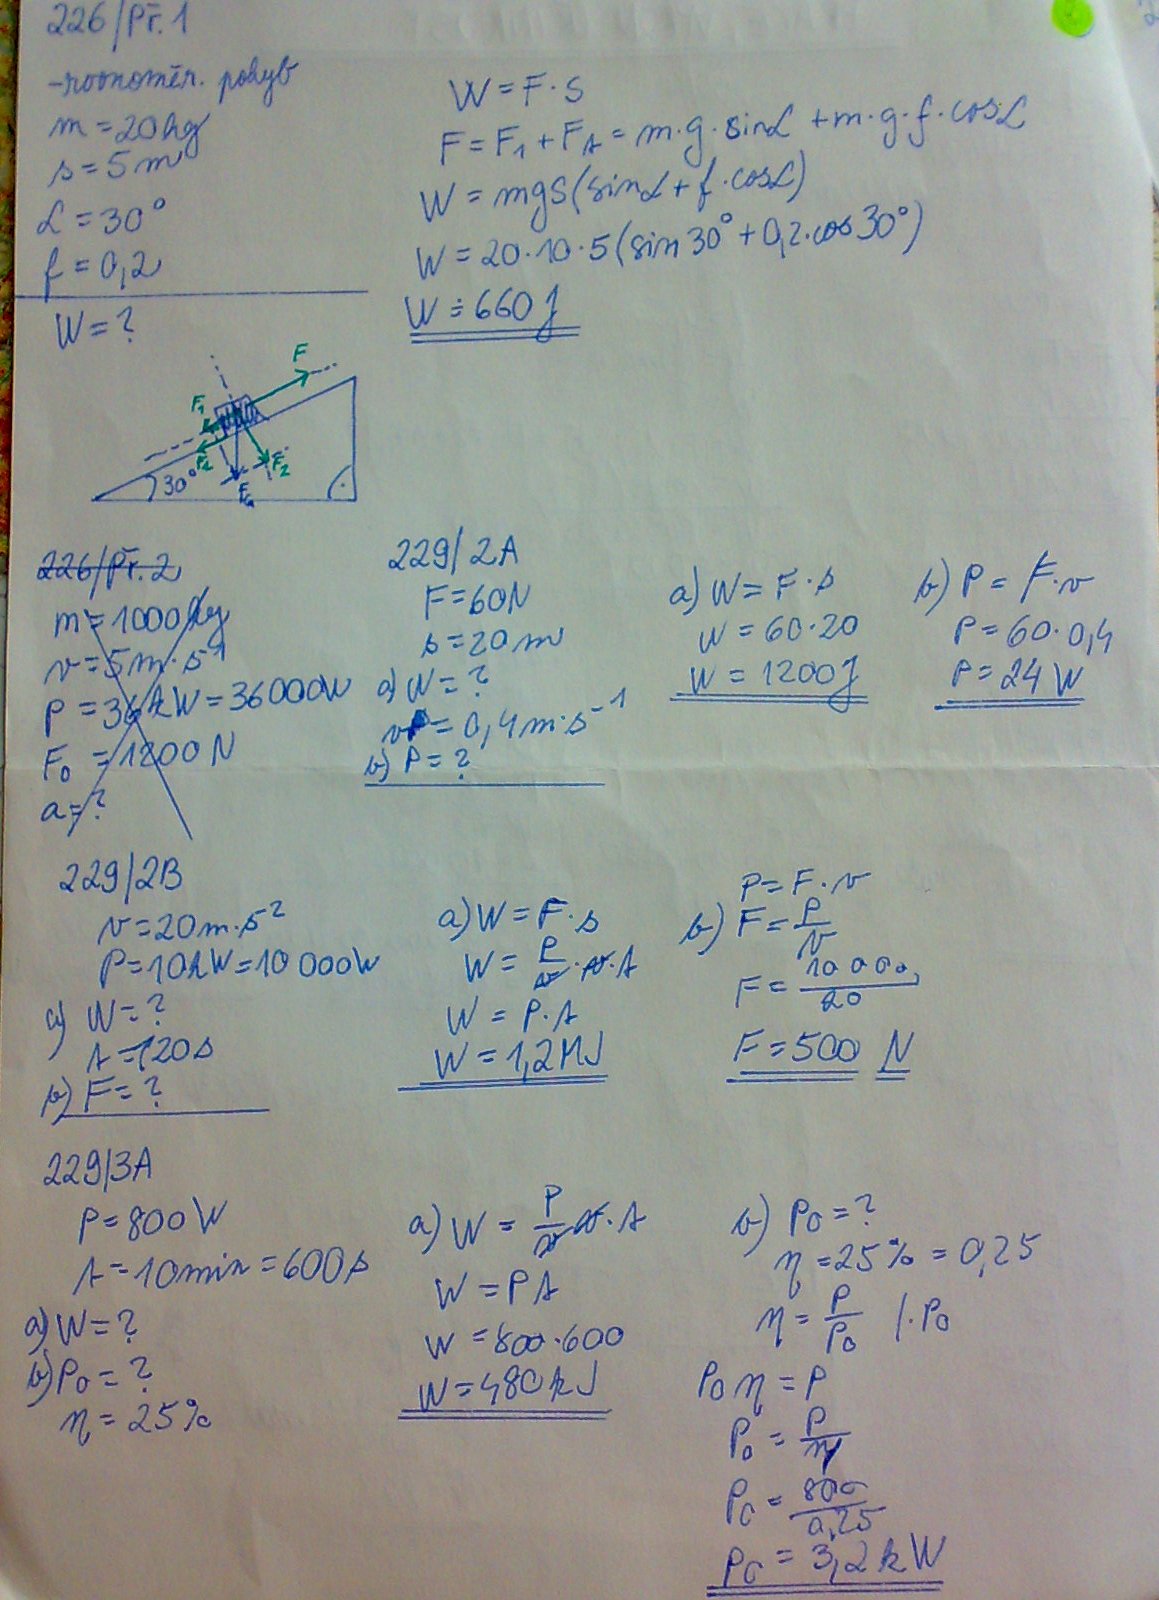 226/Př. 1
-rovnoměr. pohyb
m = 20 kg
s = 5 m
α = 30°
f = 0,2
W = ?
W = F · s
F = F₁ + Fₜ = m · g · sin α + m · g · f · cos α
W = mgs (sin α + f · cos α)
W = 20 · 10 · 5 (sin 30° + 0,2 · cos 30°)
W ≐ 660 J
F
F₁
Fₜ
F₂
F_G
30°
226/Př. 2
m = 1000 kg
v = 5 m · s⁻¹
P = 36 kW = 36000 W
F₀ = 1200 N
a = ?
229/2A
F = 60 N
s = 20 m
a) W = ?
v = 0,4 m · s⁻¹
b) P = ?
a) W = F · s
W = 60 · 20
W = 1200 J
b) P = F · v
P = 60 · 0,4
P = 24 W
229/2B
v = 20 m · s²
P = 10 kW = 10 000 W
a) W = ?
t = 120 s
b) F = ?
a) W = F · s
W = P/v · v · t
W = P · t
W = 1,2 MJ
P = F · v
b) F = P/v
F = 10 000/20
F = 500 N
229/3A
P = 800 W
t = 10 min = 600 s
a) W = ?
b) P₀ = ?
η = 25 %
a) W = P/v v · t
W = P t
W = 800 · 600
W = 480 kJ
b) P₀ = ?
η = 25 % = 0,25
η = P/P₀ / · P₀
P₀ η = P
P₀ = P/η
P₀ = 800/0,25
P₀ = 3,2 kW